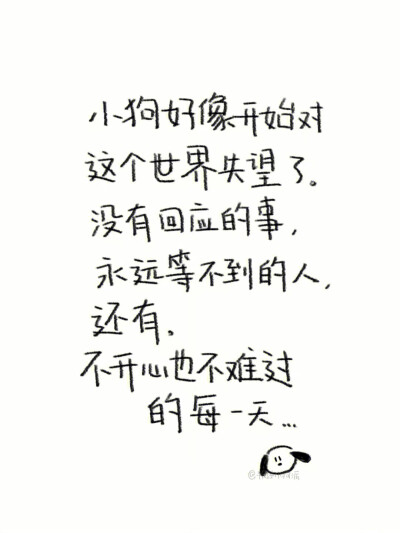 小狗好像开始对
这个世界失望了。
没有回应的事，
永远等不到的人，
还有。
不开心也不难过
的每一天...